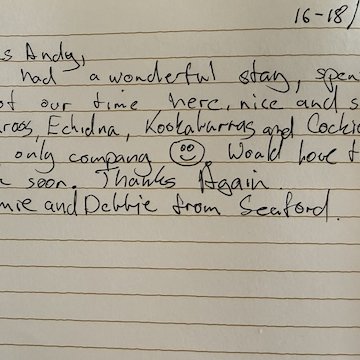 16-18/
s Andy,
had a wonderful stay, spen
of our time here, nice and s
aroos, Echidna, Kookaburras and Cockie
only company Would love t
soon. Thanks Again
mie and Debbie from Seaford.